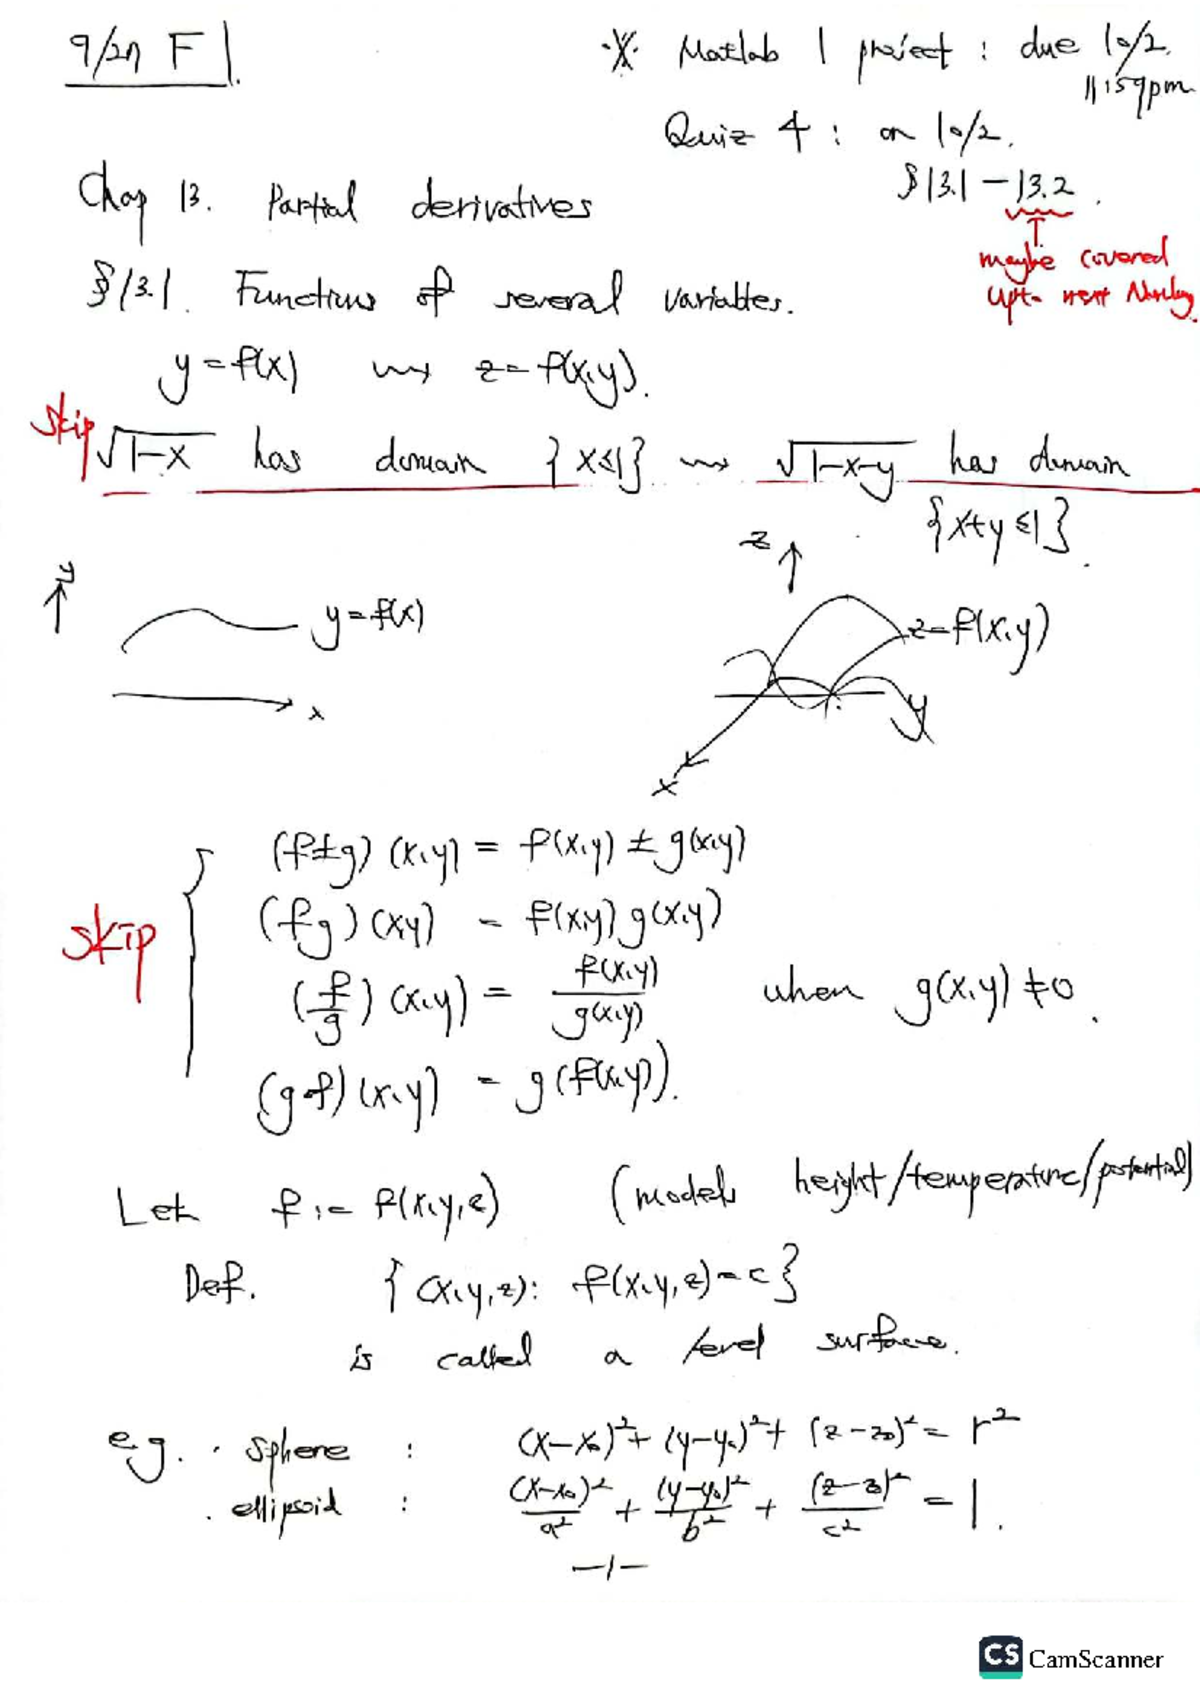 9/27 F
※ Matlab 1 project : due 10/2.
11:59pm
Quiz 4 : on 10/2.
§13.1 - 13.2.
maybe covered
next
Chap 13. Partial derivatives
§13.1. Functions of several variables.
y = f(x) ⇝ z = f(x,y).
skip
√1-x has domain { x≤1} ⇝ √1-x-y has domain
{x+y ≤1}.
y
x
y=f(x)
z
x
y
z=f(x,y)
skip
(f±g) (x,y) = f(x,y) ± g(x,y)
(fg)(xy) = f(x,y) g(x,y)
(f/g) (x,y) = f(x,y)/g(x,y) when g(x,y) ≠0.
(g∘f)(x,y) = g(f(x,y)).
Let f := f(x,y,z) (models height/temperature/potential)
Def. { (x,y,z): f(x,y,z)=c}
is called a level surface.
e.g. · sphere : (x-x₀)²+ (y-y₀)²+ (z-z₀)²= r²
· ellipsoid : (x-x₀)²/a² + (y-y₀)²/b² + (z-z₀)²/c² = 1.
-1-
CS CamScanner